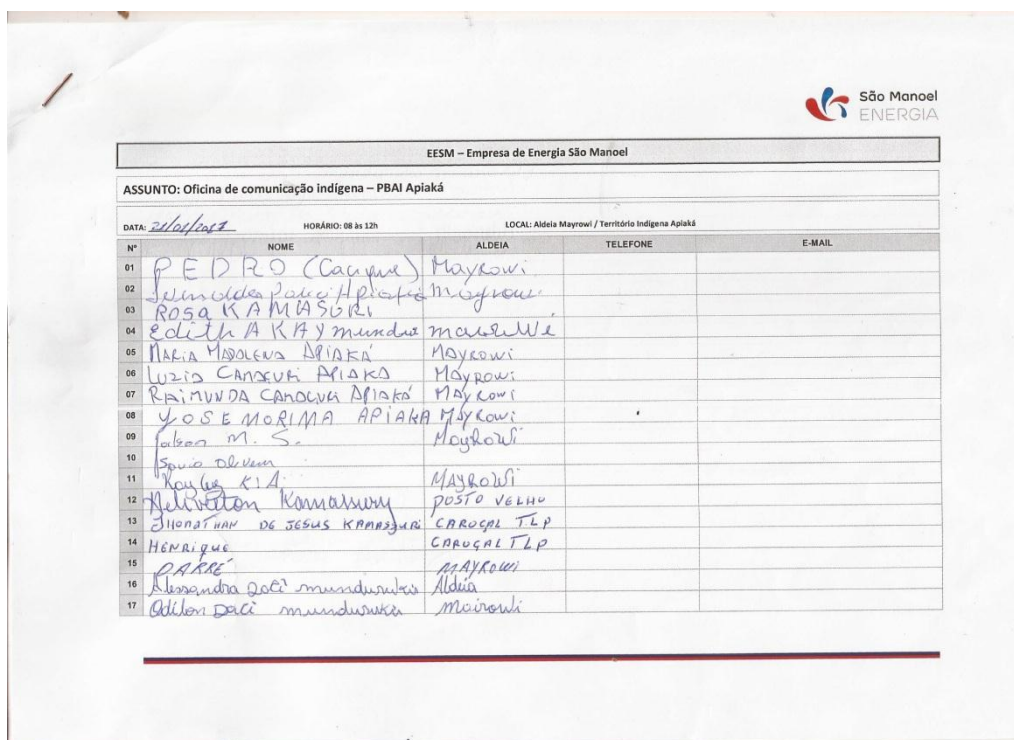 São Manoel
ENERGIA
EESM – Empresa de Energia São Manoel
ASSUNTO: Oficina de comunicação indígena – PBAI Apiaká
DATA: HORÁRIO: 08 às 12h LOCAL: Aldeia Mayrowi / Território Indígena Apiaká
Nº NOME ALDEIA TELEFONE E-MAIL
01 PEDRO (Cacique) Mayrowi
02 Mayrowi
03 ROSA KAMASURI
04 Edith A KAY
05 MARIA MADALENA APIAKÁ MAYROWI
06 LUZIA CAMAÇURI APIAKA MAYROWI
07 RAIMUNDA CAMAÇURI APIAKÁ MAYROWI
08 YOSE MORIMA APIAKA MAYROWI
09 M. S. MayRoWi
10
11 K I A MAYROWi
12 Kamassury POSTO VELHO
13 JHONATHAN DE JESUS KAMASSURI CAROÇAL TLP
14 HENRIQUE CAROÇAL TLP
15 DARRÉ MAYROWI
16 Alessandra Aldeia
17 Odilon Daci Mairowi